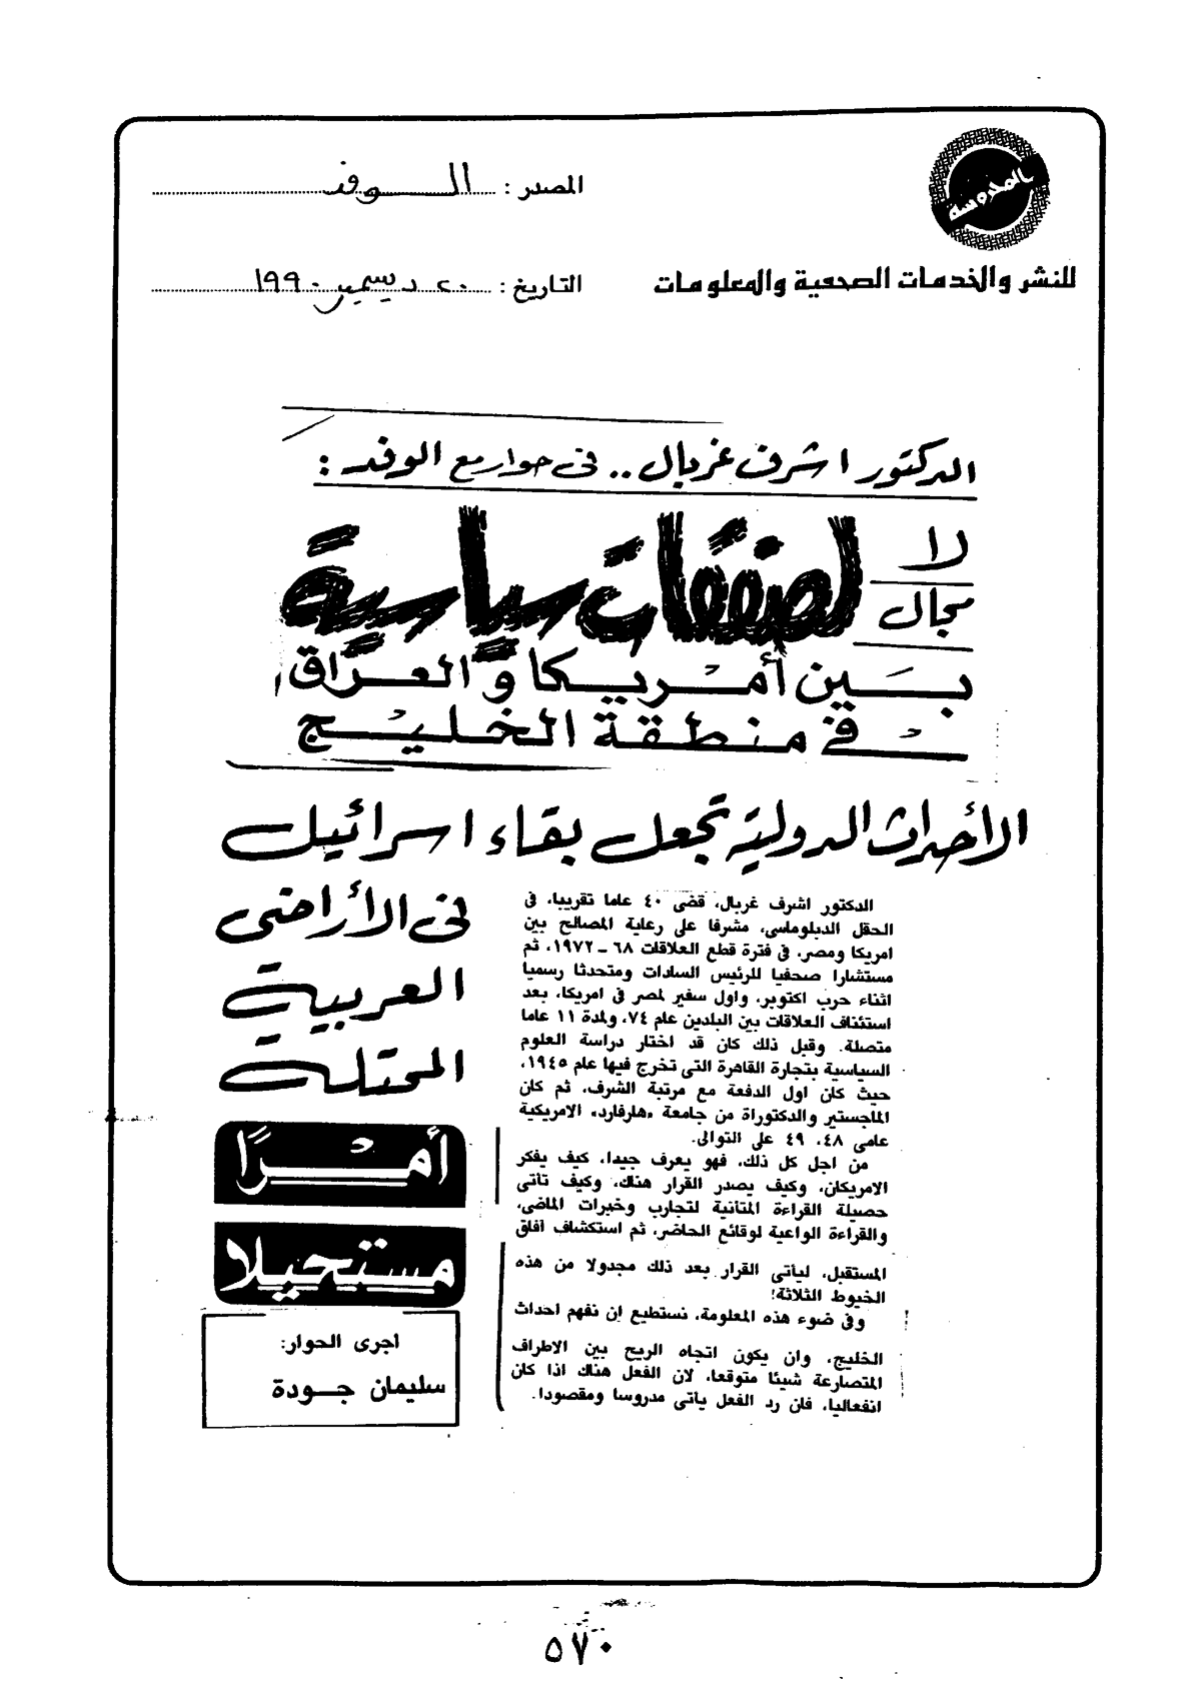 المحروسة
للنشر والخدمات الصحفية والمعلومات
المصدر : الوفد
التاريخ : ٢٠ ديسمبر ١٩٩٠
الدكتور اشرف غربال .. فى حوار مع الوفد :
لا مجال
لصفقات سياسية
بين أمريكا والعراق
فى منطقة الخليج
الأحداث الدولية تجعل بقاء اسرائيل
فى الأراضى
العربية
المحتلة
أمرًا
مستحيلا
اجرى الحوار:
سليمان جودة
الدكتور اشرف غربال، قضى ٤٠ عاما تقريبا، فى
الحقل الدبلوماسى، مشرفا على رعاية المصالح بين
امريكا ومصر، فى فترة قطع العلاقات ٦٨ ـ ١٩٧٢، ثم
مستشارا صحفيا للرئيس السادات ومتحدثا رسميا
اثناء حرب اكتوبر، واول سفير لمصر فى امريكا، بعد
استئناف العلاقات بين البلدين عام ٧٤، ولمدة ١١ عاما
متصلة. وقبل ذلك كان قد اختار دراسة العلوم
السياسية بتجارة القاهرة التى تخرج فيها عام ١٩٤٥،
حيث كان اول الدفعة مع مرتبة الشرف، ثم كان
الماجستير والدكتوراة من جامعة «هارفارد» الامريكية
عامى ٤٨، ٤٩ على التوالى.
من اجل كل ذلك، فهو يعرف جيدا، كيف يفكر
الامريكان، وكيف يصدر القرار هناك، وكيف تأتى
حصيلة القراءة المتأنية لتجارب وخبرات الماضى،
والقراءة الواعية لوقائع الحاضر، ثم استكشاف آفاق
المستقبل، ليأتى القرار بعد ذلك مجدولا من هذه
الخيوط الثلاثة!
وفى ضوء هذه المعلومة، نستطيع ان نفهم احداث
الخليج، وان يكون اتجاه الريح بين الاطراف
المتصارعة شيئا متوقعا، لان الفعل هناك اذا كان
انفعاليا، فان رد الفعل يأتى مدروسا ومقصودا.
٥٧٠